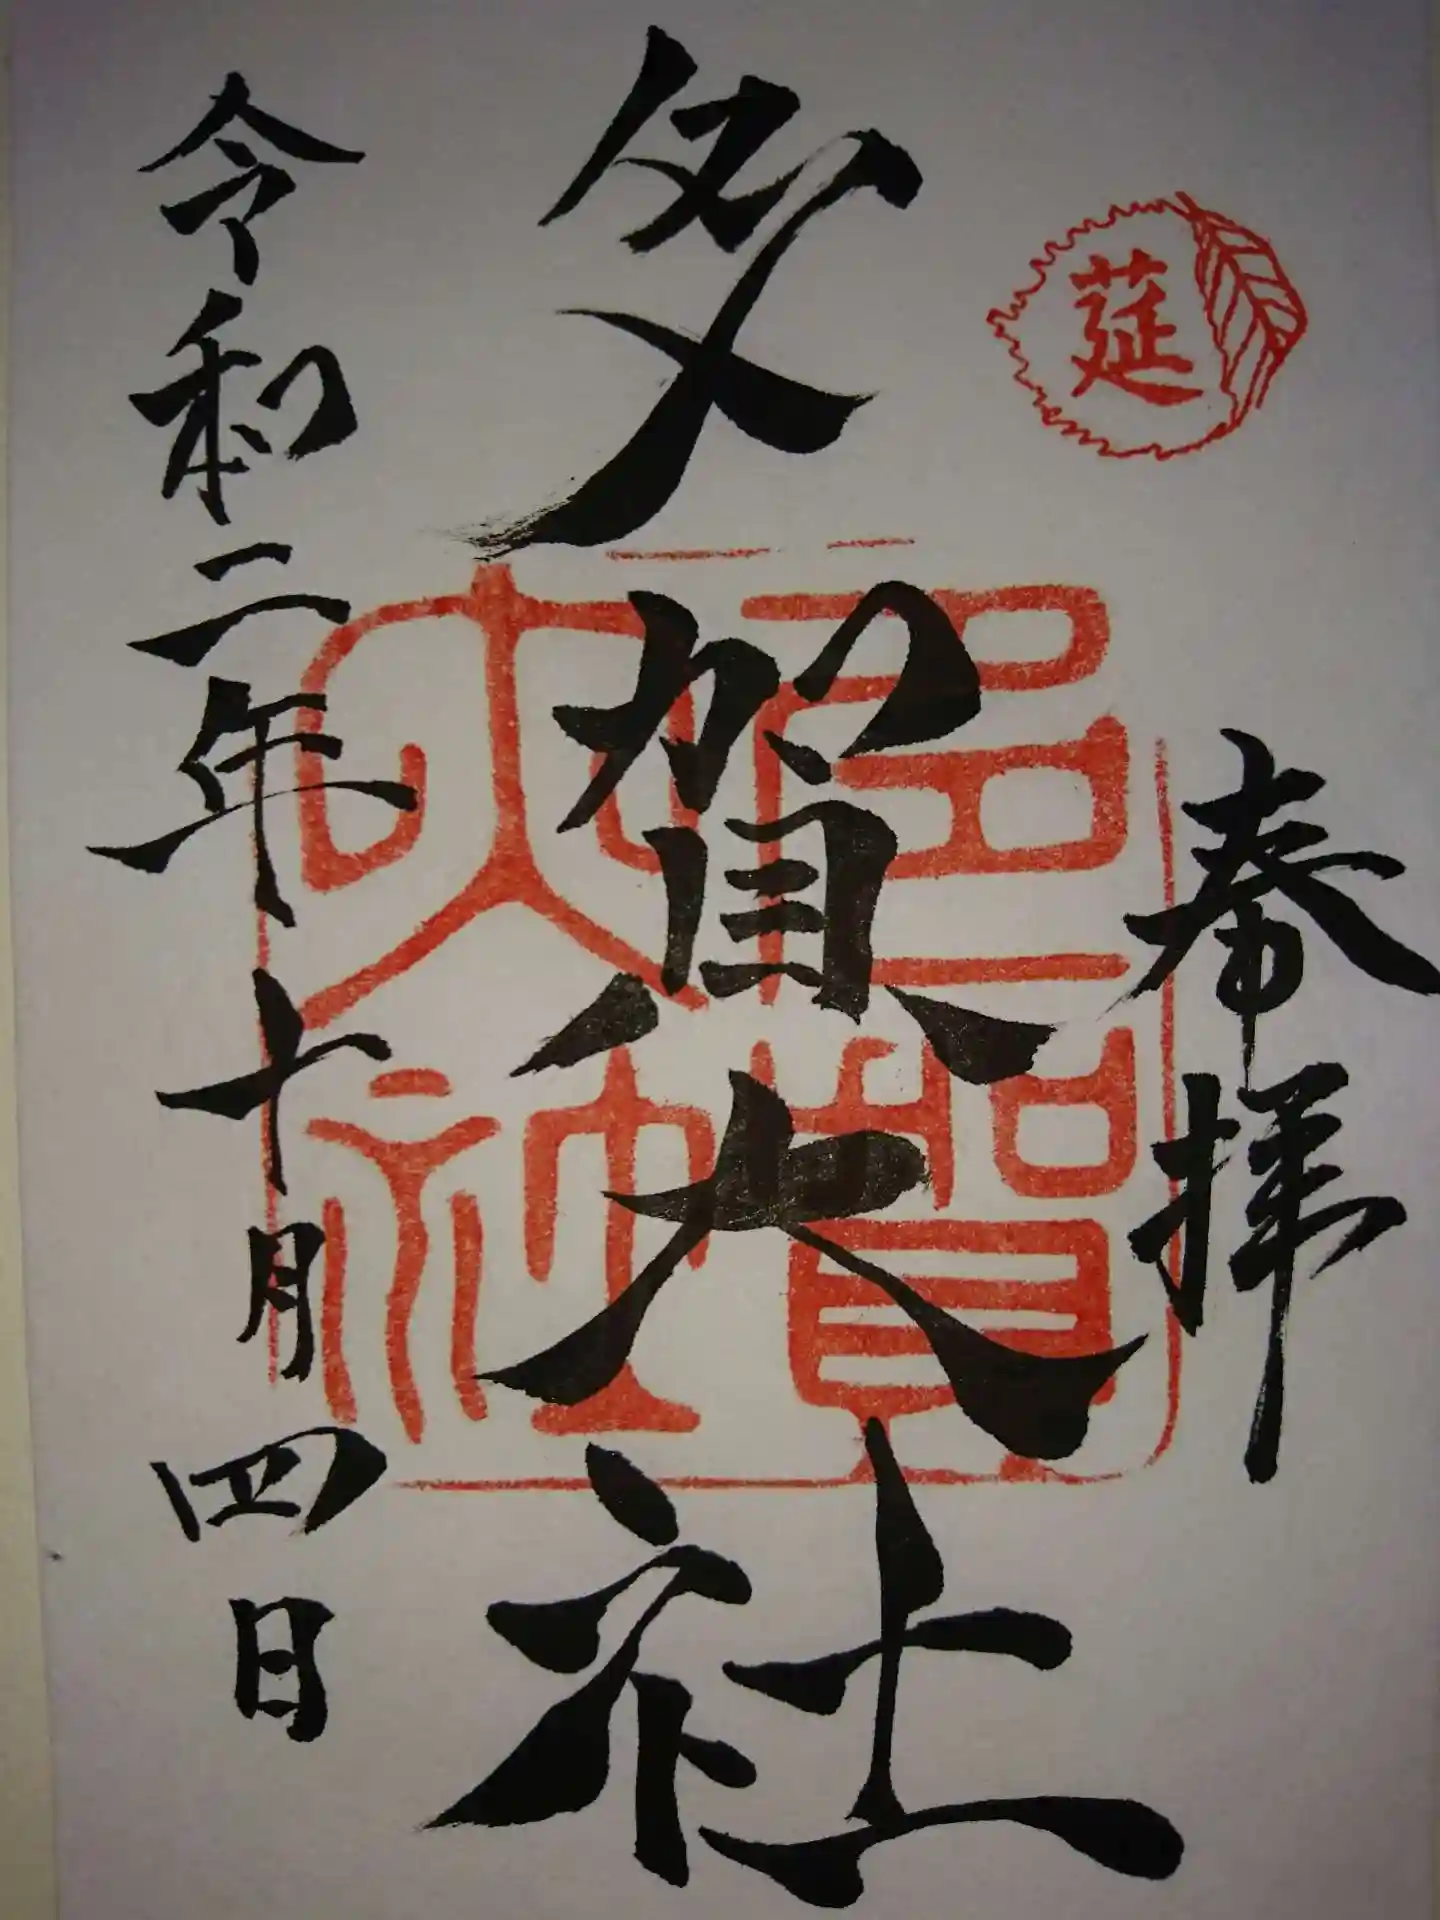 莚
奉拝
多賀大社
多賀
大社
令和二年十月四日